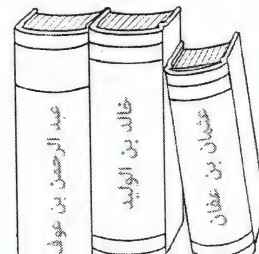 عبد الرحمن بن عوف
خالد بن الوليد
عثمان بن عفان